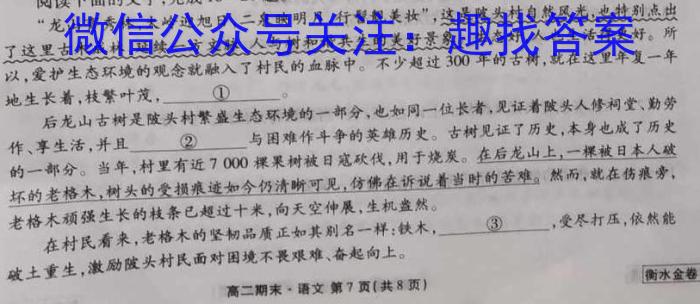 阅读下面的文字，完成
微信公众号关注：趣找答案
"龙 秀 迎旭日，二泉映明月，行 美妆"，这是陂头村自然风光，也特别点出
了这里古
以，爱护生态环境的观念就融入了村民的血脉中。不少超过300年的古树，就在这里年复一年
地生长着，枝繁叶茂，①。
后龙山古树是陂头村繁盛生态环境的一部分，也如同一位长者，见证着陂头人修祠堂、勤劳
作、享生活，并且②与困难作斗争的英雄历史。古树见证了历史，本身也成了历史
的一部分。当年，村里有近7 000棵果树被日寇砍伐，用于烧炭。在后龙山上，一棵被日本人破
坏的老格木，树头的受损痕迹如今仍清晰可见，仿佛在诉说着当时的苦难。然而，就在伤痕旁，
老格木顽强生长的枝条已超过十米，向天空伸展，生机盎然。
在村民看来，老格木的坚韧品质正如其别名一样：铁木，③，受尽打压，依然能
破土重生，激励陂头村民面对困境不畏艰难、奋起向上。
高二期末·语文 第7页(共8页)
衡水金卷